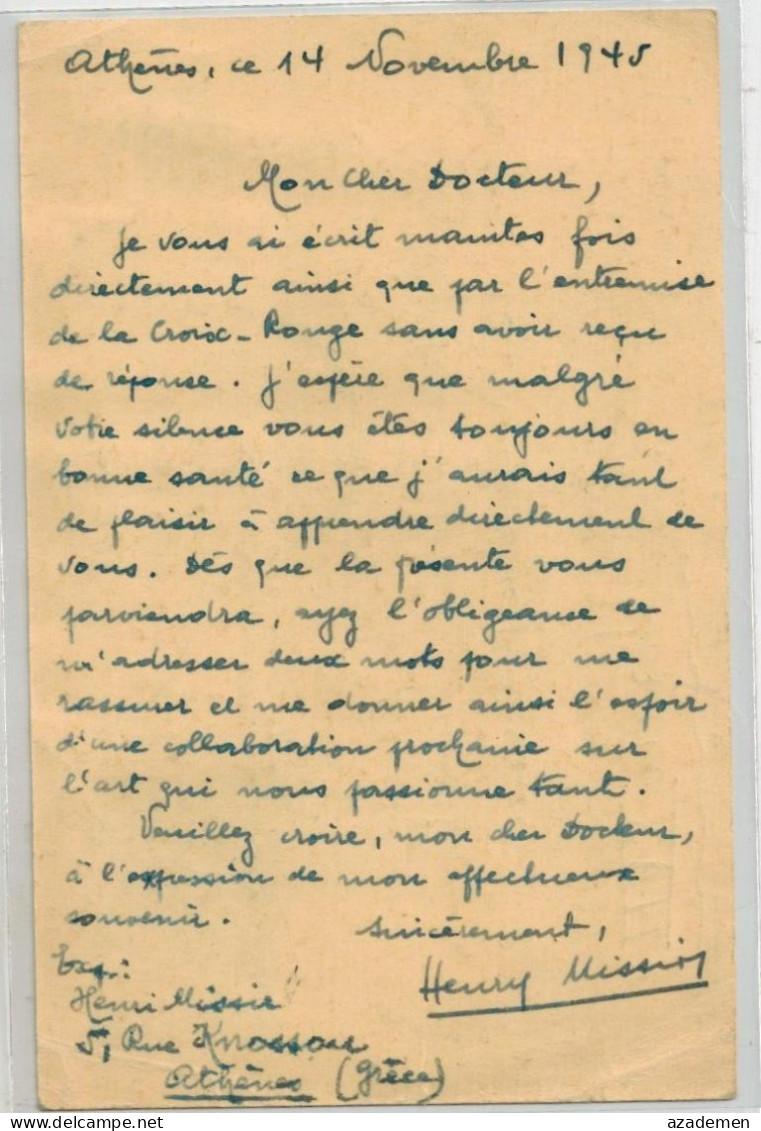 Athènes, ce 14 Novembre 1945
Mon cher Docteur,
Je vous ai écrit maintes fois
directement ainsi que par l'entremise
de la Croix-Rouge sans avoir reçu
de réponse. J'espère que malgré
votre silence vous êtes toujours en
bonne santé ce que j'aurais tant
de plaisir à apprendre directement de
vous. Dès que la présente vous
parviendra, ayez l'obligeance de
m'adresser deux mots pour me
rassurer et me donner ainsi l'espoir
d'une collaboration prochaine sur
l'art qui nous passionne tant.
Veuillez croire, mon cher Docteur,
à l'expression de mon affectueux
souvenir.
sincèrement,
Henry Missir
Exp.:
Henri Missir
5, Rue
Athènes (Grèce)
azademen